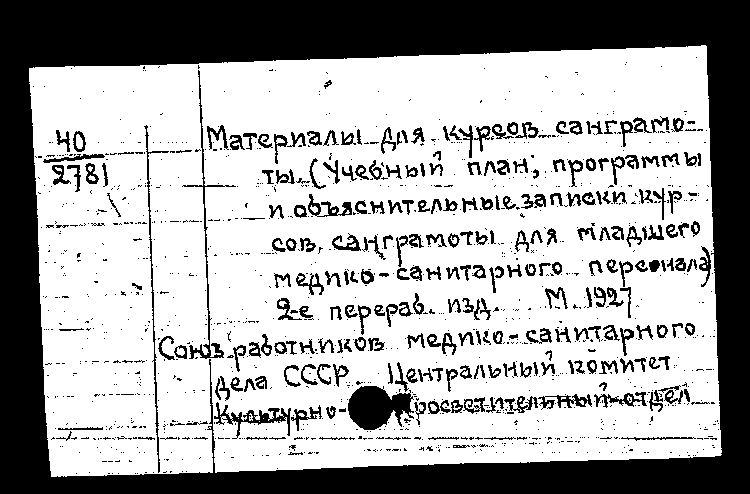 40
2781
Материалы для курсов санграмо-
ты. (Учебный план, программы
и объяснительные записки кур-
сов санграмоты для младшего
медико-санитарного персонала)
2-е перераб. изд. М. 1927
Союз работников медико-санитарного
дела СССР. Центральный комитет
Культурно-просветительный отдел